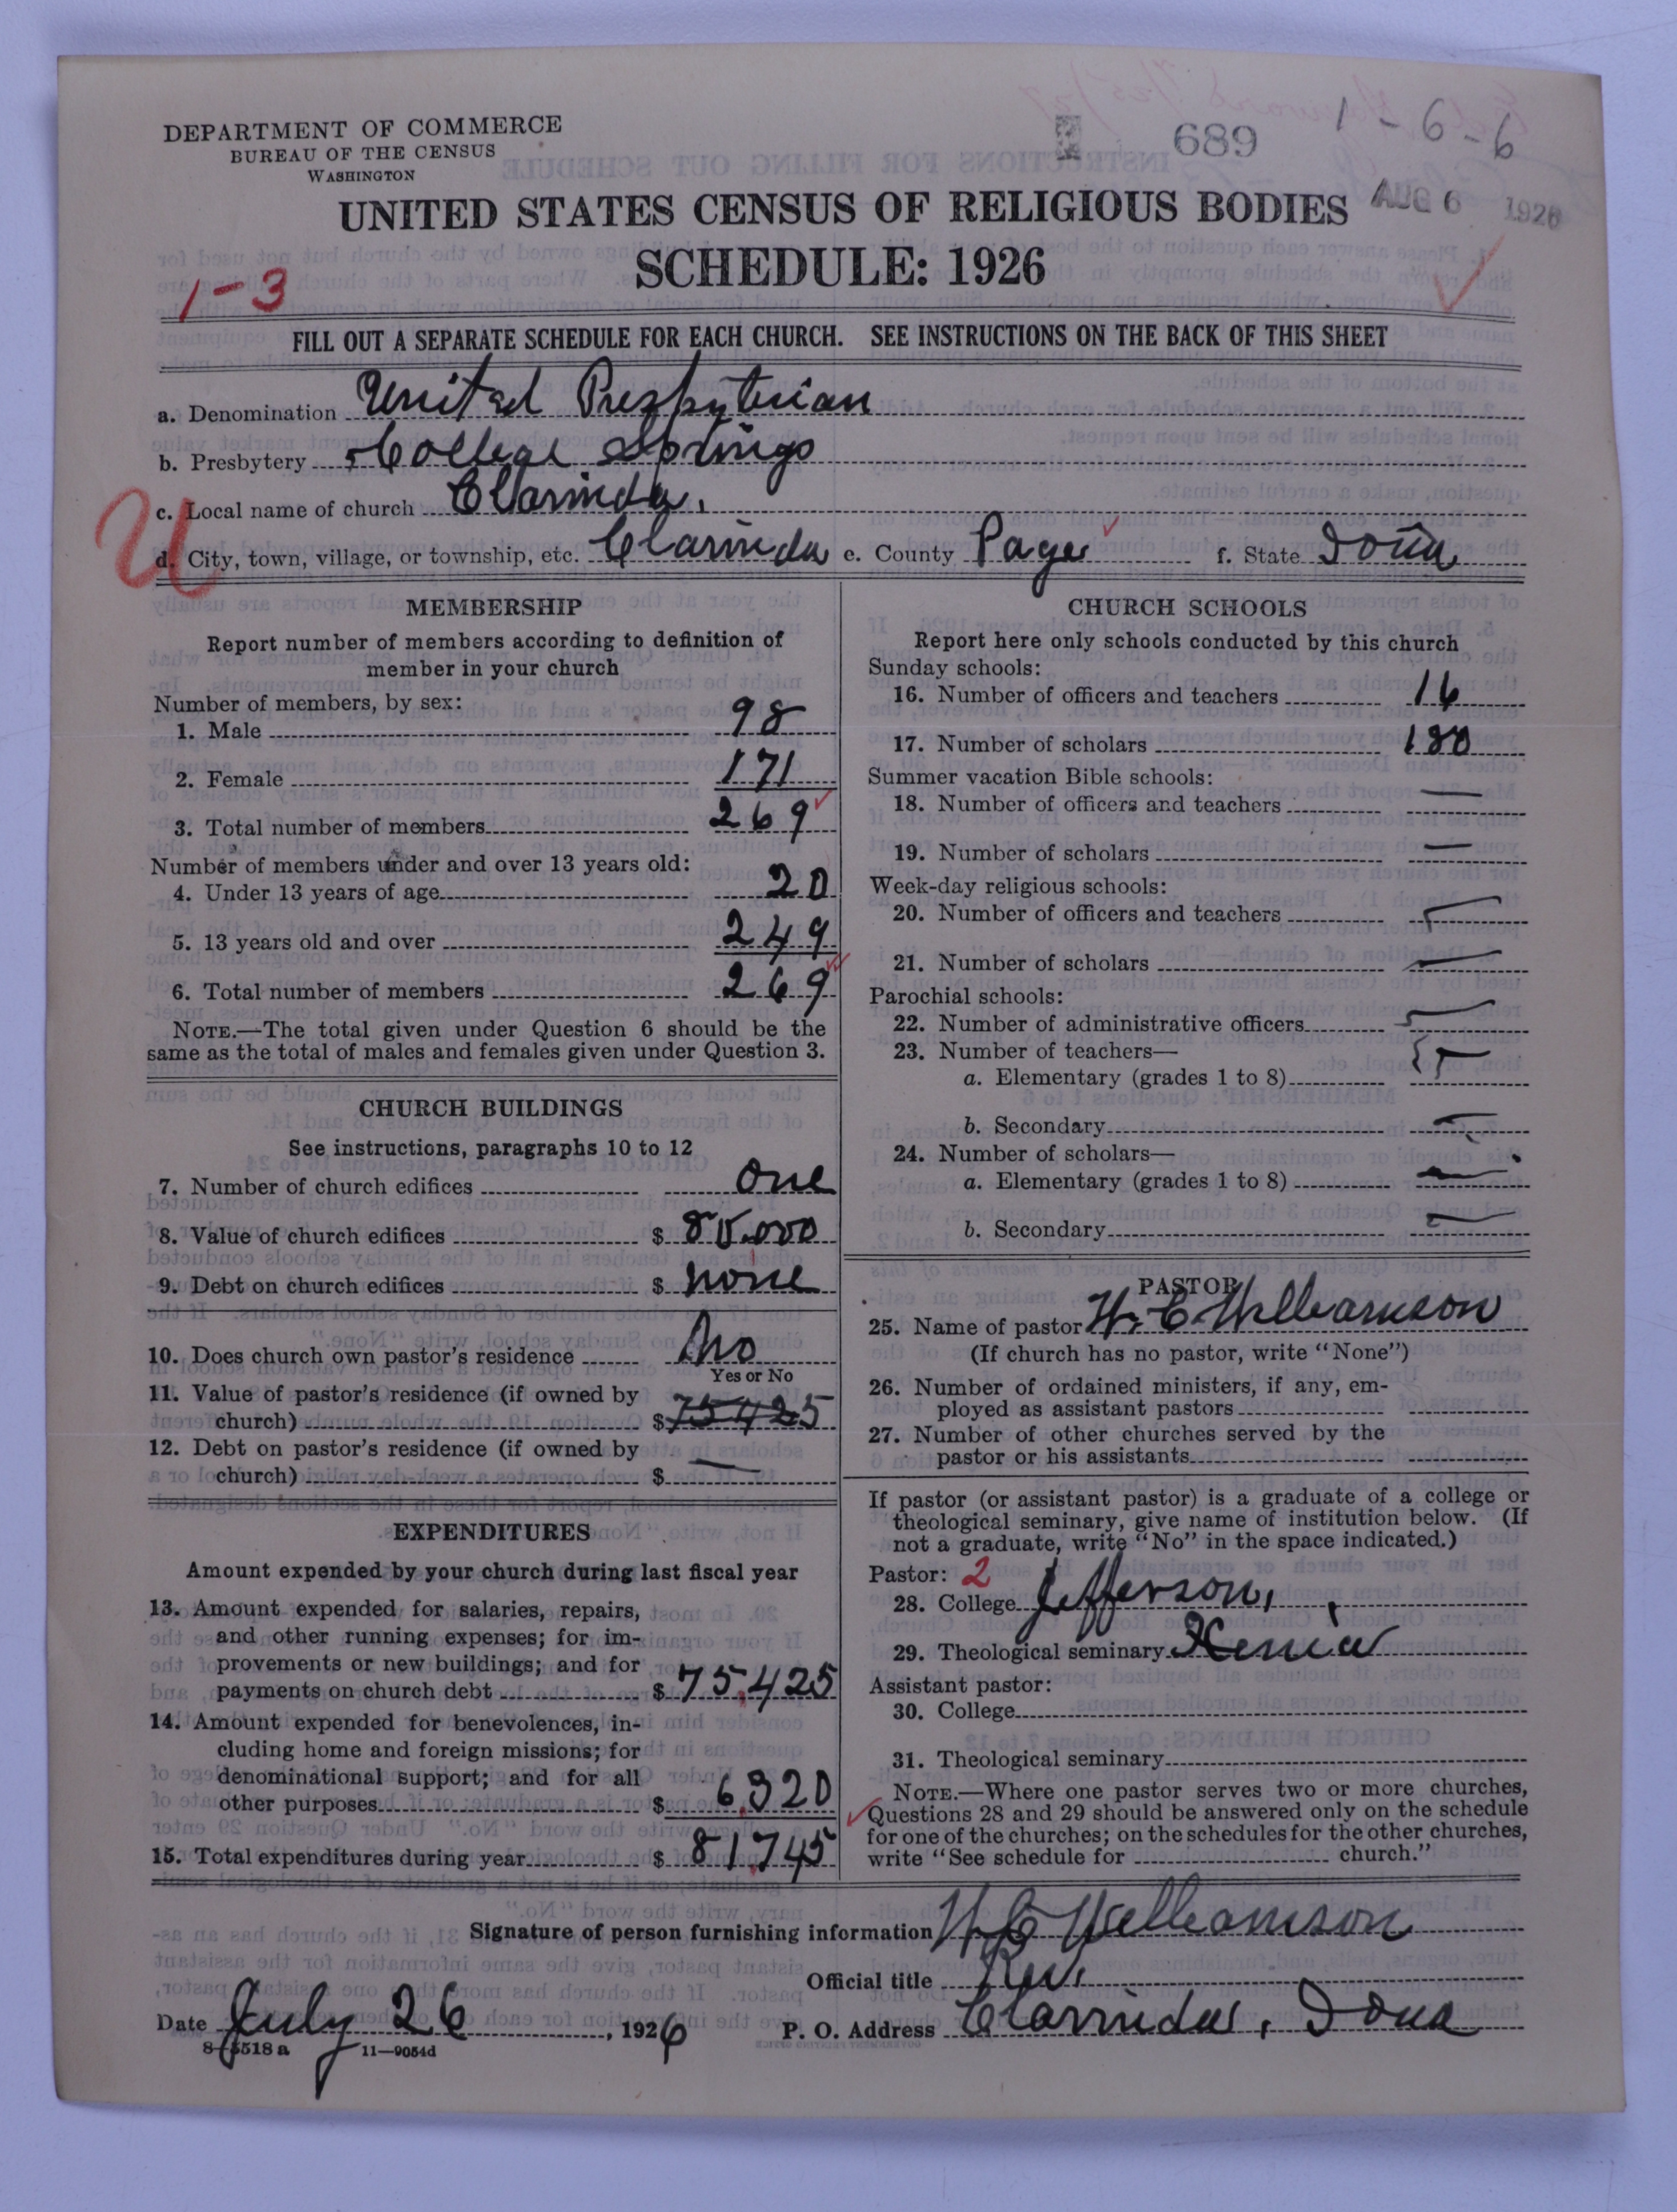 DEPARTMENT OF COMMERCE
BUREAU OF THE CENSUS
WASHINGTON
689
1-6-6
UNITED STATES CENSUS OF RELIGIOUS BODIES
AUG 6 1926
SCHEDULE: 1926
1-3
FILL OUT A SEPARATE SCHEDULE FOR EACH CHURCH. SEE INSTRUCTIONS ON THE BACK OF THIS SHEET
a. Denomination United Presbyterian
b. Presbytery College Springs
c. Local name of church Clarinda,
U
d. City, town, village, or township, etc. Clarinda e. County Page f. State Iowa
MEMBERSHIP
Report number of members according to definition of
member in your church
Number of members, by sex:
1. Male 98
2. Female 171
3. Total number of members 269
Number of members under and over 13 years old:
4. Under 13 years of age 20
5. 13 years old and over 249
6. Total number of members 269
NOTE.—The total given under Question 6 should be the
same as the total of males and females given under Question 3.
CHURCH BUILDINGS
See instructions, paragraphs 10 to 12
7. Number of church edifices one
8. Value of church edifices $
9. Debt on church edifices $ none
10. Does church own pastor's residence No
Yes or No
11. Value of pastor's residence (if owned by
church) $ 75425
12. Debt on pastor's residence (if owned by
church) $ —
EXPENDITURES
Amount expended by your church during last fiscal year
13. Amount expended for salaries, repairs,
and other running expenses; for im-
provements or new buildings; and for
payments on church debt $ 75,425
14. Amount expended for benevolences, in-
cluding home and foreign missions; for
denominational support; and for all
other purposes $ 6,320
15. Total expenditures during year $ 81,745
CHURCH SCHOOLS
Report here only schools conducted by this church
Sunday schools:
16. Number of officers and teachers 16
17. Number of scholars 180
Summer vacation Bible schools:
18. Number of officers and teachers —
19. Number of scholars —
Week-day religious schools:
20. Number of officers and teachers —
21. Number of scholars —
Parochial schools:
22. Number of administrative officers —
23. Number of teachers—
a. Elementary (grades 1 to 8) —
b. Secondary —
24. Number of scholars—
a. Elementary (grades 1 to 8) —
b. Secondary —
PASTOR
25. Name of pastor W. C. Williamson
(If church has no pastor, write "None")
26. Number of ordained ministers, if any, em-
ployed as assistant pastors
27. Number of other churches served by the
pastor or his assistants
If pastor (or assistant pastor) is a graduate of a college or
theological seminary, give name of institution below. (If
not a graduate, write "No" in the space indicated.)
Pastor: 2
28. College Jefferson,
29. Theological seminary Xenia
Assistant pastor:
30. College
31. Theological seminary
NOTE.—Where one pastor serves two or more churches,
Questions 28 and 29 should be answered only on the schedule
for one of the churches; on the schedules for the other churches,
write "See schedule for church."
Signature of person furnishing information W C Williamson
Official title Rev.
Date July 26, 1926 P. O. Address Clarinda, Iowa
8-5518 a 11-9054d